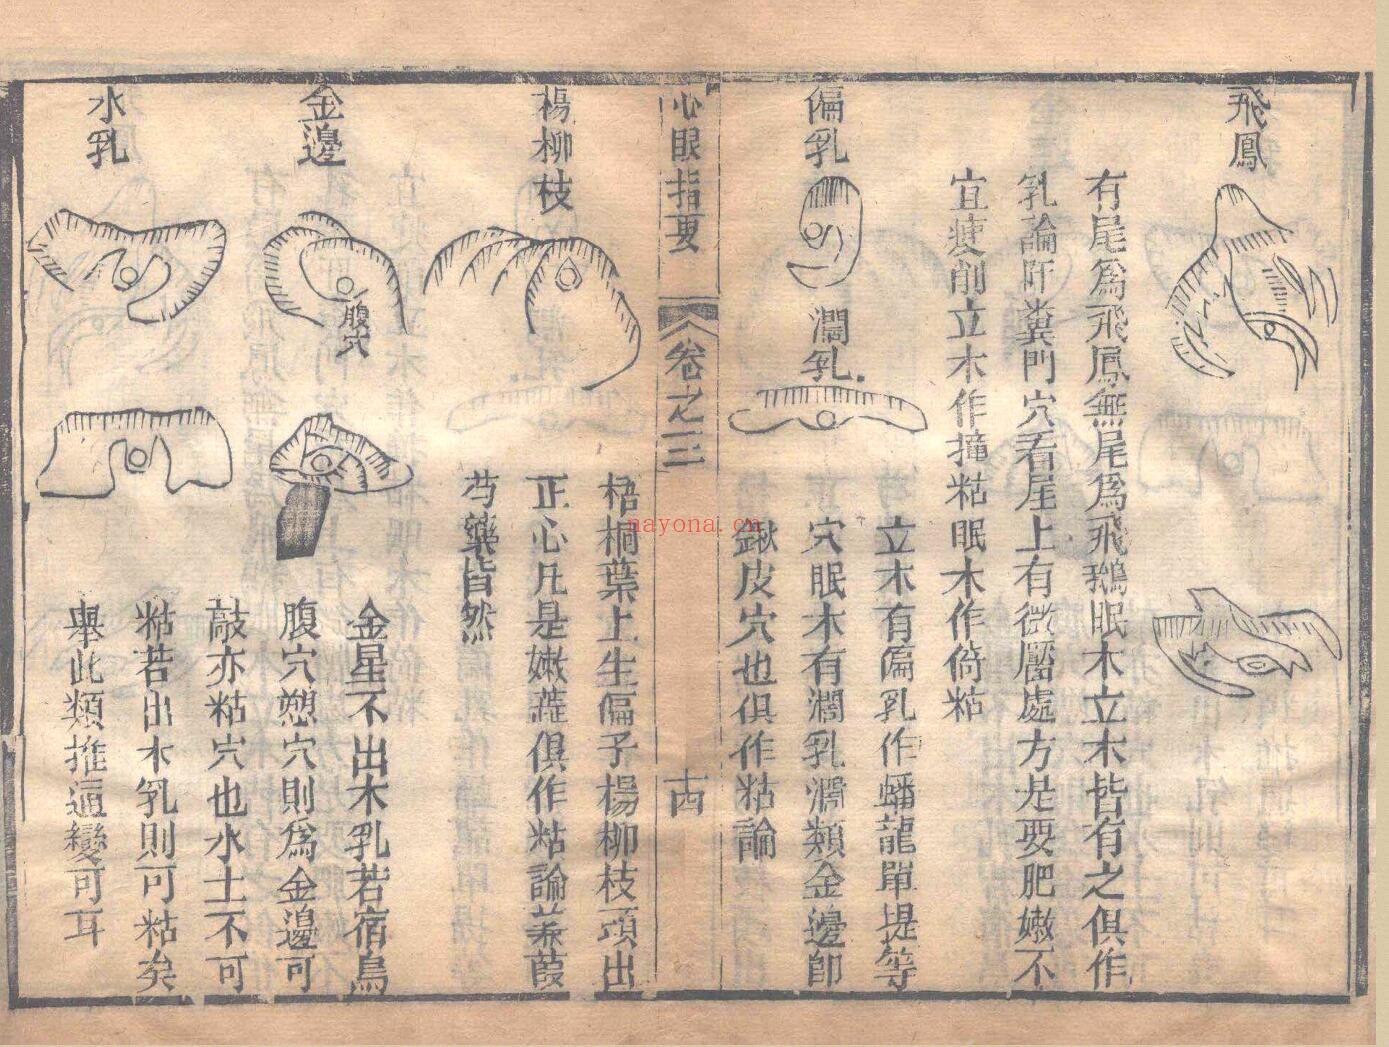 飛鳳
有尾為飛鳳無尾為飛鵝眠木立木皆有之俱作
乳論阡糞門穴看尾上有微靨處方是要肥嫩不
宜瘦削立木作撞粘眠木作倚粘
偏乳
濶乳
立木有偏乳作蟠龍單提等
穴眠木有濶乳濶類金邊即
鍬皮穴也俱作粘論
心眼指要
卷之三
十四
楊柳枝
梧桐葉上生偏子楊柳枝頭出
正心凡是嫩蕋俱作粘論蒹葭
芍藥皆然
金邊
腹穴
金星不出木乳若宿鳥
腹穴憩穴則為金邊可
敲亦粘穴也水土不可
粘若出木乳則可粘矣
舉此類推通變可耳
水乳
nayonai.cn